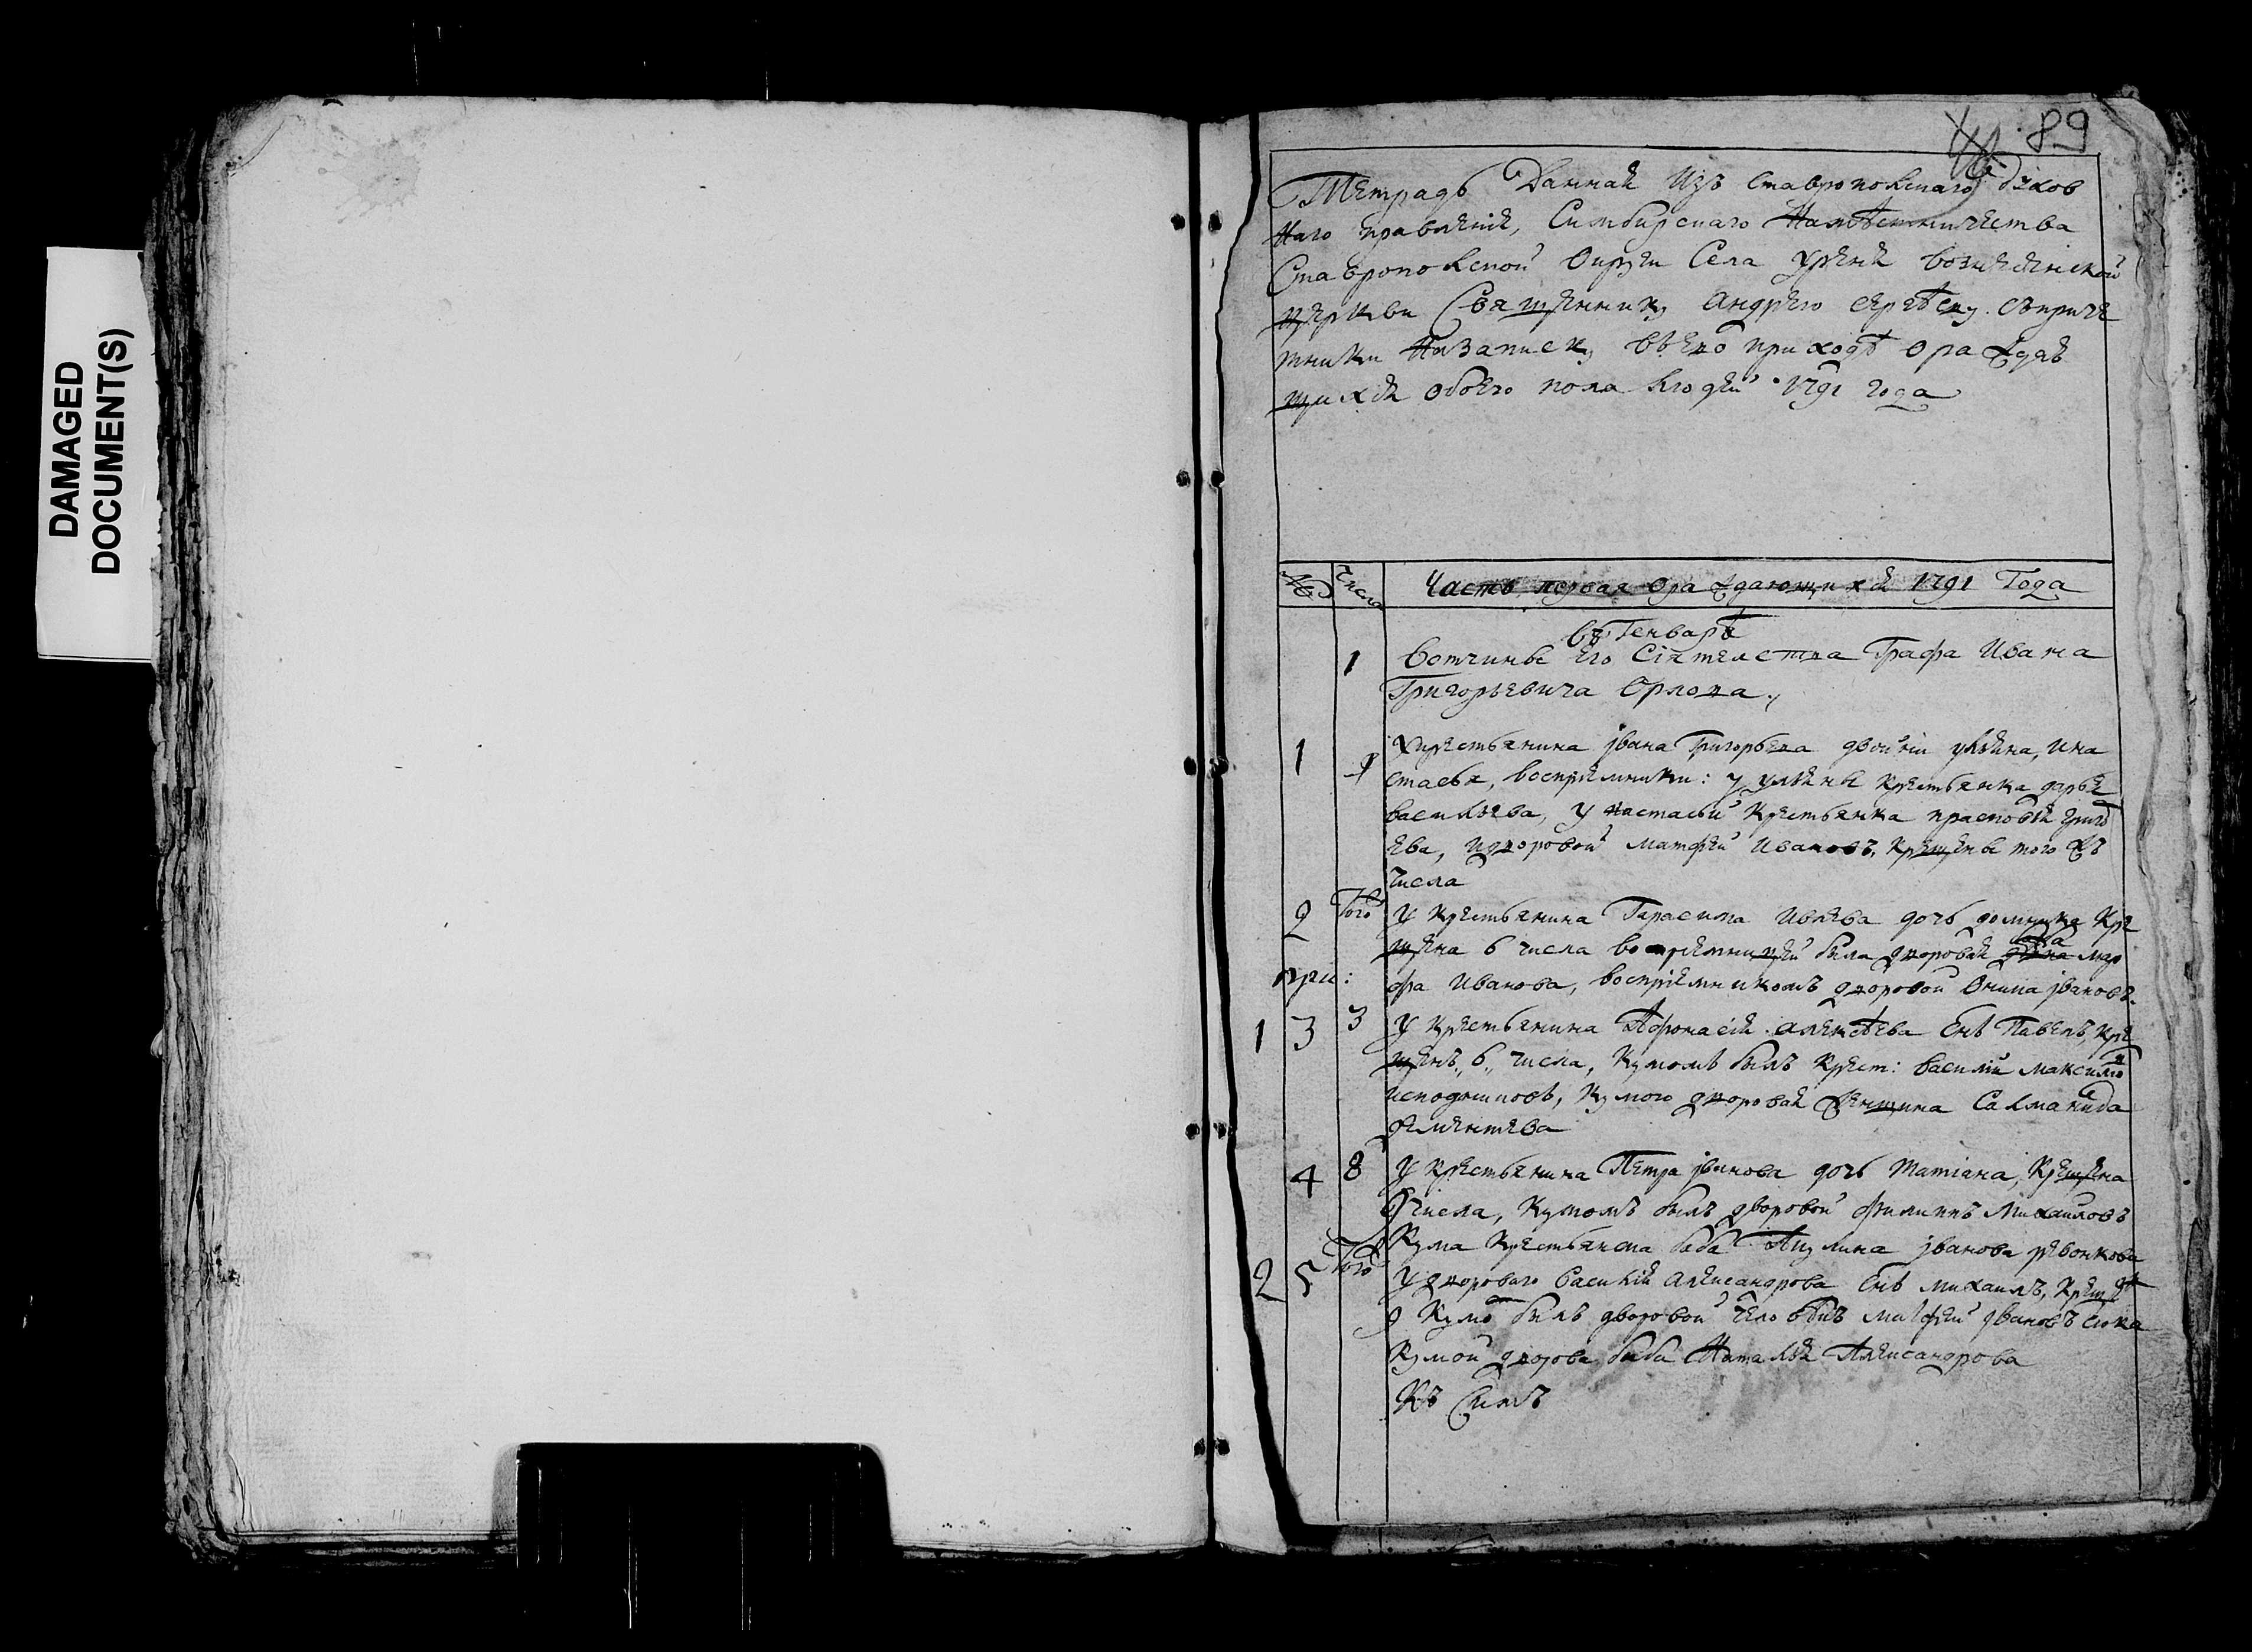 DAMAGED
DOCUMENT(S)
89
Тетрадь Данная Изъ Ставропольскаго духов
наго правления, Симбирскаго Намѣстничества
Ставропольской Округи Села Уреня вознесенской
церкви Священнику Андрею Сергѣеву съприче
тники Назаписку, въево приходѣ ораждав
шихся обоего пола людей 1791 года
№ Числа Часть первая Ораждающихся 1791 Года
въ Генварѣ
1 вотчины Его Сіятелства Графа Ивана
Григорьевича Орлова.
1 укрестьянина јвана Григорьева двойни ульяна, ина
стасья, воспріемники: у ульяны крестьянка дарья
васильева, у настасьи крестьянка прасковья григо
ева, идворовой матфей Ивановъ, крещены того жъ
числа
2 Того У крестьянина Гарасима дочь домника кре
щена 6 числа воспріемницей была дворовая мар
при: фа Иванова, воспріемникомъ дворовой јвановъ.
1 3 3 У крестьянина Афонасія алексѣева Сынъ Павелъ, кре
щенъ 6 числа, кумомъ былъ крест: василій максимо
кумою дворовая женщина Саломанида
4 8 У крестьянина Петра јванова дочь татіана, крещена
9 числа, кумомъ былъ дворовой филиппъ Михаиловъ
Кума крестьянска баба Акулина јванова
2 5 Того У двороваго василья Александрова Сынъ михаилъ, крещ
9 Кумо былъ дворовой человѣкъ матфей јвановъ
кумой дворова баба Наталья Александрова
Къ Симъ